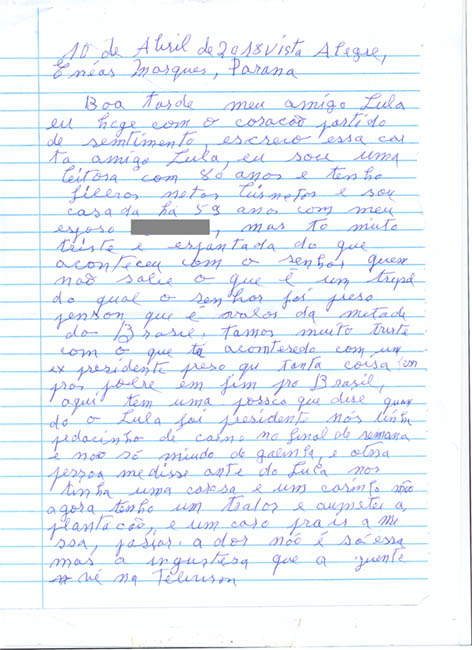 10 de Abril de 2018 Vista Alegre,
Enéas Marques, Parana
Boa tarde meu amigo Lula
eu hoge com o coracão partido
de semtimento, escrevo essa car
ta amigo Lula, eu sou uma
leitosa com 80 anos e tenho
fileros netos bisnetos e sou
casada há 59 anos com meu
esposo , mas to muto
triste e espantada do que
aconteceu com o senhor, quem
não sabe o que é um
do qual o senhor foi preso
penson que é da metade
do Brasil, tamos muito triste
com o que ta acontesedo com um
ex presidente preso qu tanta coisa fem
pro pobre em fim pro Brasil,
aqui tem uma possoa que dise quan
do o Lula foi presidente nós tinha
pedacinho de carne no final de semana
e não só miudo de galinha, e otra
pessoa medisse ante do Lula nos
tinha uma carosa e um carinho mão
agora tenho um trator e aumetei a
plantacão, e um caro pra ir a mi
sa, pasiar, a dor não é só essa
mas a ingustesa que a guente
vé na Televison